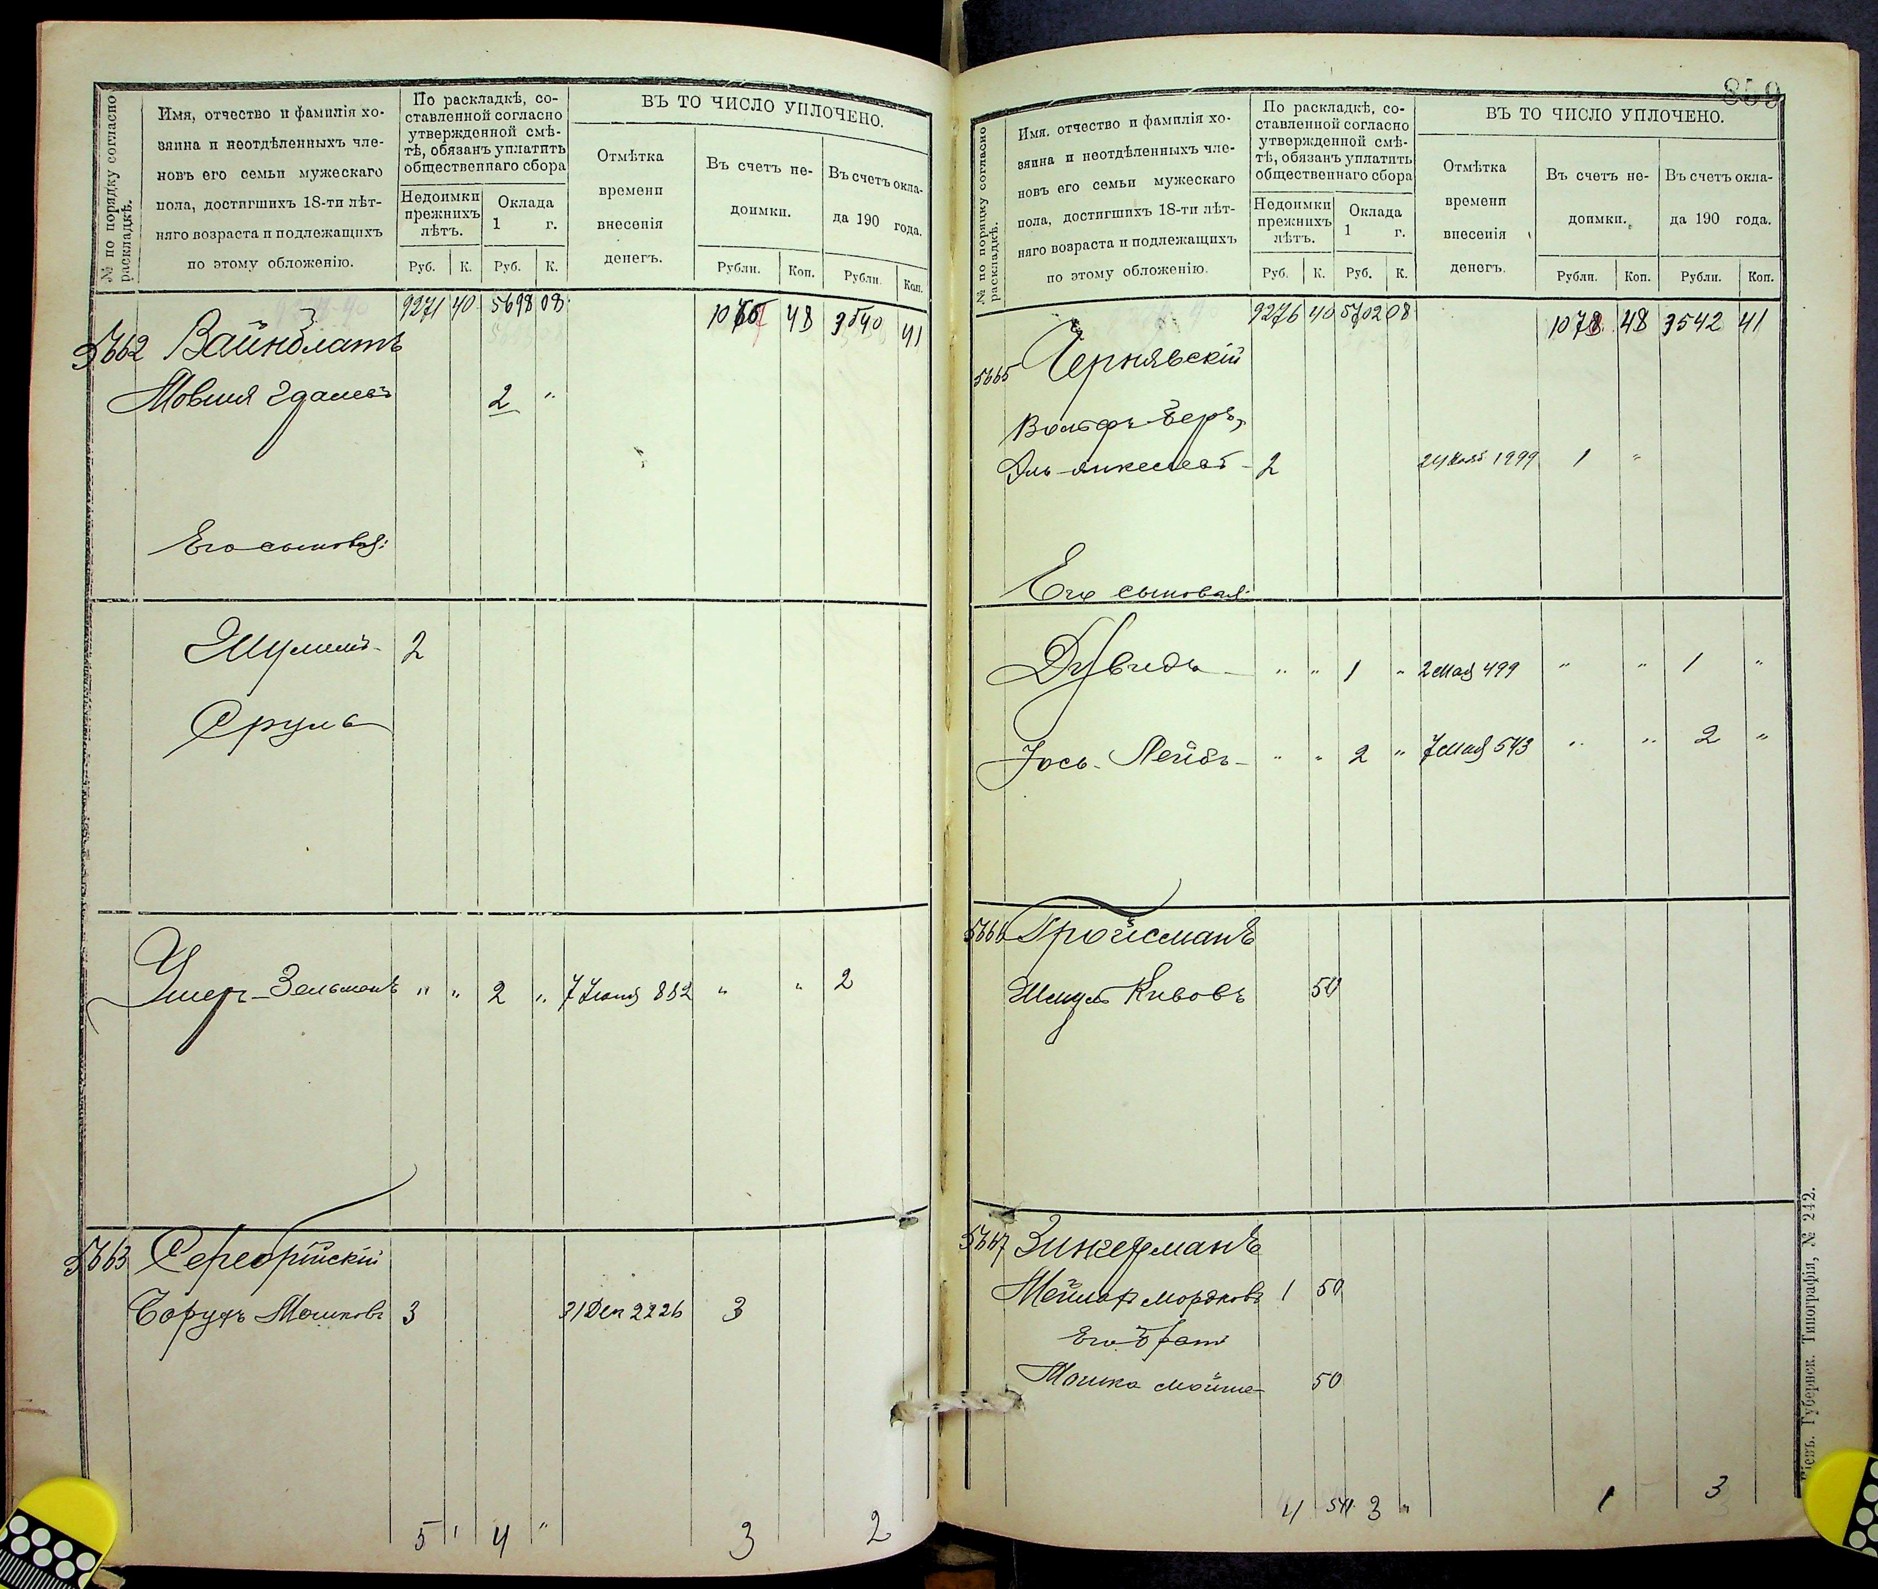 № по порядку согласно раскладкѣ.
Имя, отчество и фамилія хо-
зяина и неотдѣленныхъ чле-
новъ его семьи мужескаго
пола, достигшихъ 18-ти лѣт-
няго возраста и подлежащихъ
по этому обложенію.
По раскладкѣ, со-
ставленной согласно
утвержденной смѣ-
тѣ, обязанъ уплатить
общественнаго сбора
Недоимки прежнихъ лѣтъ.
Оклада 1 г.
Руб. К. Руб. К.
ВЪ ТО ЧИСЛО УПЛОЧЕНО.
Отмѣтка
времени
внесенія
денегъ.
Въ счетъ не-
доимки.
Въ счетъ окла-
да 190 года.
Рубли. Коп. Рубли. Коп.
9271 40 5698 08 48 3540 41
5662 Вайнблатъ
Мовшя Гдалевъ 2 "
Его сыновья:
Шулимъ 2
Сруль
Ушер-Зельманъ " " 2 " 7 Іюня 882 " " 2
5663
Борухъ Мошковъ 3 31 Дек 2226 3
5 " 4 " 3 2
859
№ по порядку согласно раскладкѣ.
Имя, отчество и фамилія хо-
зяина и неотдѣленныхъ чле-
новъ его семьи мужескаго
пола, достигшихъ 18-ти лѣт-
няго возраста и подлежащихъ
по этому обложенію.
По раскладкѣ, со-
ставленной согласно
утвержденной смѣ-
тѣ, обязанъ уплатить
общественнаго сбора
Недоимки прежнихъ лѣтъ.
Оклада 1 г.
Руб. К. Руб. К.
ВЪ ТО ЧИСЛО УПЛОЧЕНО.
Отмѣтка
времени
внесенія
денегъ.
Въ счетъ не-
доимки.
Въ счетъ окла-
да 190 года.
Рубли. Коп. Рубли. Коп.
9276 40 5702 08 1078 48 3542 41
5665 Чернявскій
Вольфъ-Беръ,
2 1999 1 "
Его сыновья:
Дувидъ " " 1 " 2 Мая 499 " " 1 "
Іось-Лейбъ " " 2 " 7 Мая 543 " " 2 "
5666 Гройсманъ
Шмуль Кивовъ 50
5667 Зингерманъ
Мордковъ 1 50
Его братъ
Мошко Мойше 50
3 " 1 3
Кіевъ. Губернск. Типографія, № 242.